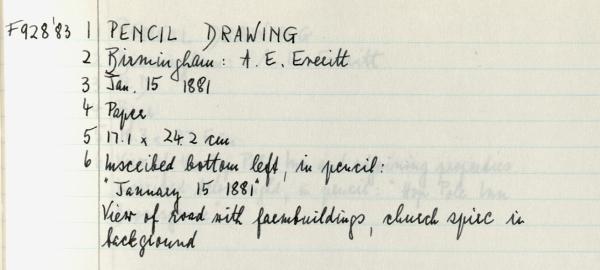 F928'83 1 PENCIL DRAWING
2 Birmingham: A. E. Everitt
3 Jan. 15 1881
4 Paper
5 17.1 x 24.2 cm
6 Inscribed bottom left, in pencil:
"January 15 1881"
View of road with farmbuildings, church spire in
background